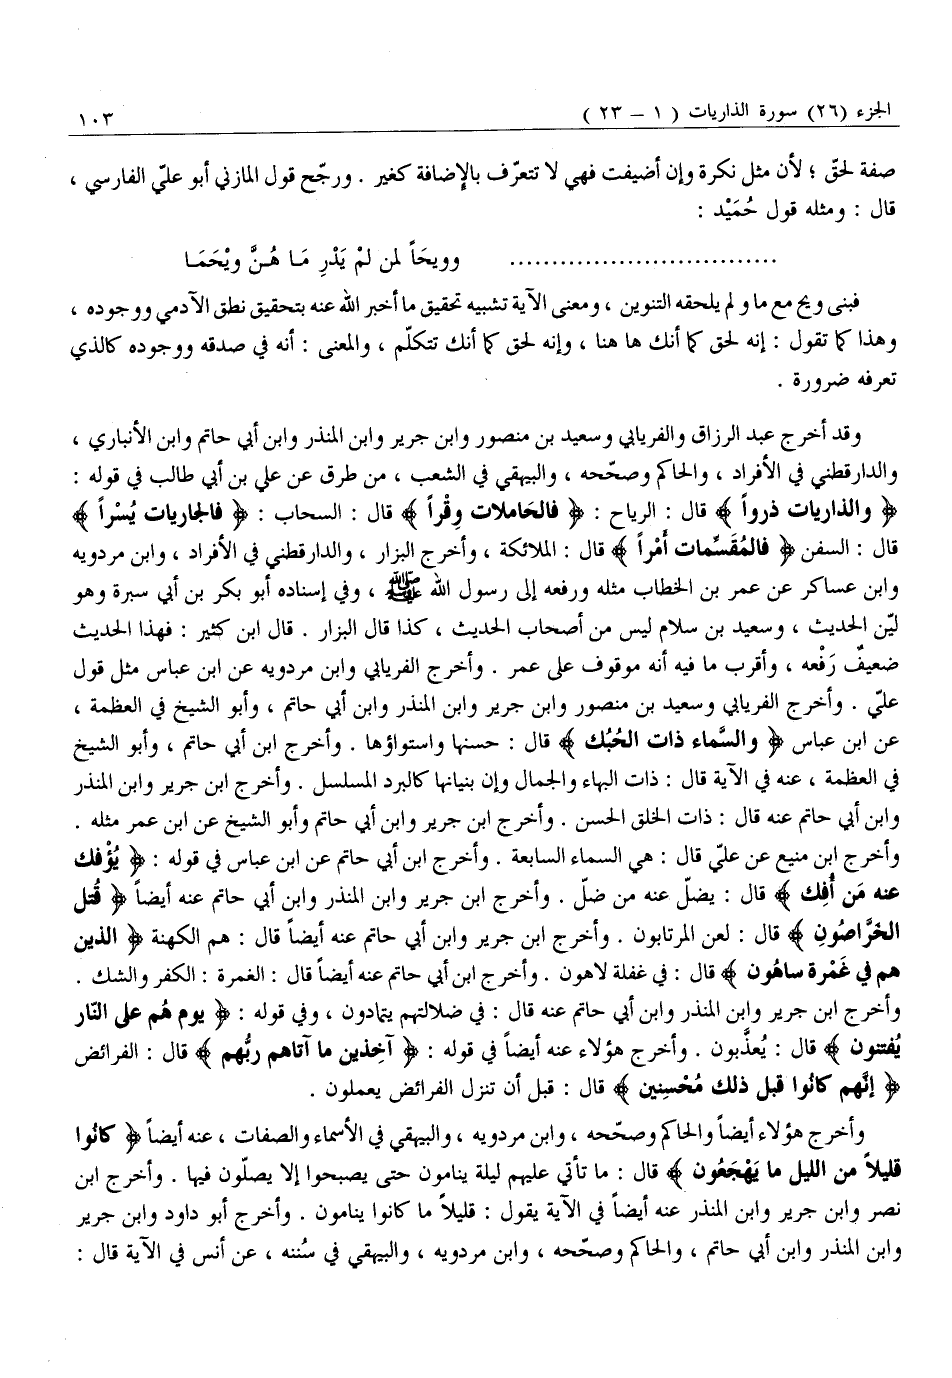 الجزء (٢٦) سورة الذاريات ( ١ - ٢٣ ) ١٠٣
صفة لحقّ ؛ لأن مثل نكرة وإن أضيفت فهي لا تتعرّف بالإضافة كغير . ورجّح قول المازني أبو عليّ الفارسي ،
قال : ومثله قول حُمَيْد :
................................ وويحَاً لمن لمْ يَدْرِ مَا هُنَّ ويْحَمَا
فبنى ويح مع ما ولم يلحقه التنوين ، ومعنى الآية تشبيه تحقيق ما أخبر الله عنه بتحقيق نطق الآدمي ووجوده ،
وهذا كما تقول : إنه لحق كما أنك ها هنا ، وإنه لحق كما أنك تتكلّم ، والمعنى : أنه في صدقه ووجوده كالذي
تعرفه ضرورة .
وقد أخرج عبد الرزاق والفريابي وسعيد بن منصور وابن جرير وابن المنذر وابن أبي حاتم وابن الأنباري ،
والدارقطني في الأفراد ، والحاكم وصحّحه ، والبيهقي في الشعب ، من طرق عن علي بن أبي طالب في قوله :
﴿ والذاريات ذرواً ﴾ قال : الرياح : ﴿ فالحَاملات وِقْراً ﴾ قال : السحاب : ﴿ فالجاريات يُسْراً ﴾
قال : السفن ﴿ فالمُقَسِّمات أمْراً ﴾ قال : الملائكة ، وأخرج البزار ، والدارقطني في الأفراد ، وابن مردويه
وابن عساكر عن عمر بن الخطاب مثله ورفعه إلى رسول الله ﷺ ، وفي إسناده أبو بكر بن أبي سبرة وهو
ليّن الحديث ، وسعيد بن سلام ليس من أصحاب الحديث ، كذا قال البزار . قال ابن كثير : فهذا الحديث
ضعيفٌ رَفْعه ، وأقرب ما فيه أنه موقوف على عمر . وأخرج الفريابي وابن مردويه عن ابن عباس مثل قول
عليّ . وأخرج الفريابي وسعيد بن منصور وابن جرير وابن المنذر وابن أبي حاتم ، وأبو الشيخ في العظمة ،
عن ابن عباس ﴿ والسَّماء ذات الحُبُك ﴾ قال : حسنها واستواؤها . وأخرج ابن أبي حاتم ، وأبو الشيخ
في العظمة ، عنه في الآية قال : ذات البهاء والجمال وإن بنيانها كالبرد المسلسل . وأخرج ابن جرير وابن المنذر
وابن أبي حاتم عنه قال : ذات الخلق الحسن . وأخرج ابن جرير وابن أبي حاتم وأبو الشيخ عن ابن عمر مثله .
وأخرج ابن منيع عن عليّ قال : هي السماء السابعة . وأخرج ابن أبي حاتم عن ابن عباس في قوله : ﴿ يُؤْفك
عنه مَن أُفِك ﴾ قال : يضلّ عنه من ضلّ . وأخرج ابن جرير وابن المنذر وابن أبي حاتم عنه أيضاً ﴿ قُتل
الخَرَّاصُونِ ﴾ قال : لعن المرتابون . وأخرج ابن جرير وابن أبي حاتم عنه أيضاً قال : هم الكهنة ﴿ الذين
هم في غَمْرة ساهُون ﴾ قال : في غفلة لاهون . وأخرج ابن أبي حاتم عنه أيضاً قال : الغمرة : الكفر والشك .
وأخرج ابن جرير وابن المنذر وابن أبي حاتم عنه قال : في ضلالتهم يتمادون ، وفي قوله : ﴿ يوم هُم على النّار
يُفتنون ﴾ قال : يُعذَّبون . وأخرج هؤلاء عنه أيضاً في قوله : ﴿ آخِذين ما آتاهم ربُّهم ﴾ قال : الفرائض
﴿ إنَّهم كانُوا قبل ذلك مُحْسِنين ﴾ قال : قبل أن تنزل الفرائض يعملون .
وأخرج هؤلاء أيضاً والحاكم وصحّحه ، وابن مردويه ، والبيهقي في الأسماء والصفات ، عنه أيضاً ﴿ كانُوا
قليلاً من الليل ما يَهْجَعُون ﴾ قال : ما تأتي عليهم ليلة ينامون حتى يصبحوا إلا يصلّون فيها . وأخرج ابن
نصر وابن جرير وابن المنذر عنه أيضاً في الآية يقول : قليلاً ما كانوا ينامون . وأخرج أبو داود وابن جرير
وابن المنذر وابن أبي حاتم ، والحاكم وصحّحه ، وابن مردويه ، والبيهقي في سُننه ، عن أنس في الآية قال :